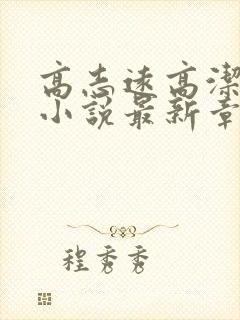 高志远高洁
小说最新章
程秀秀